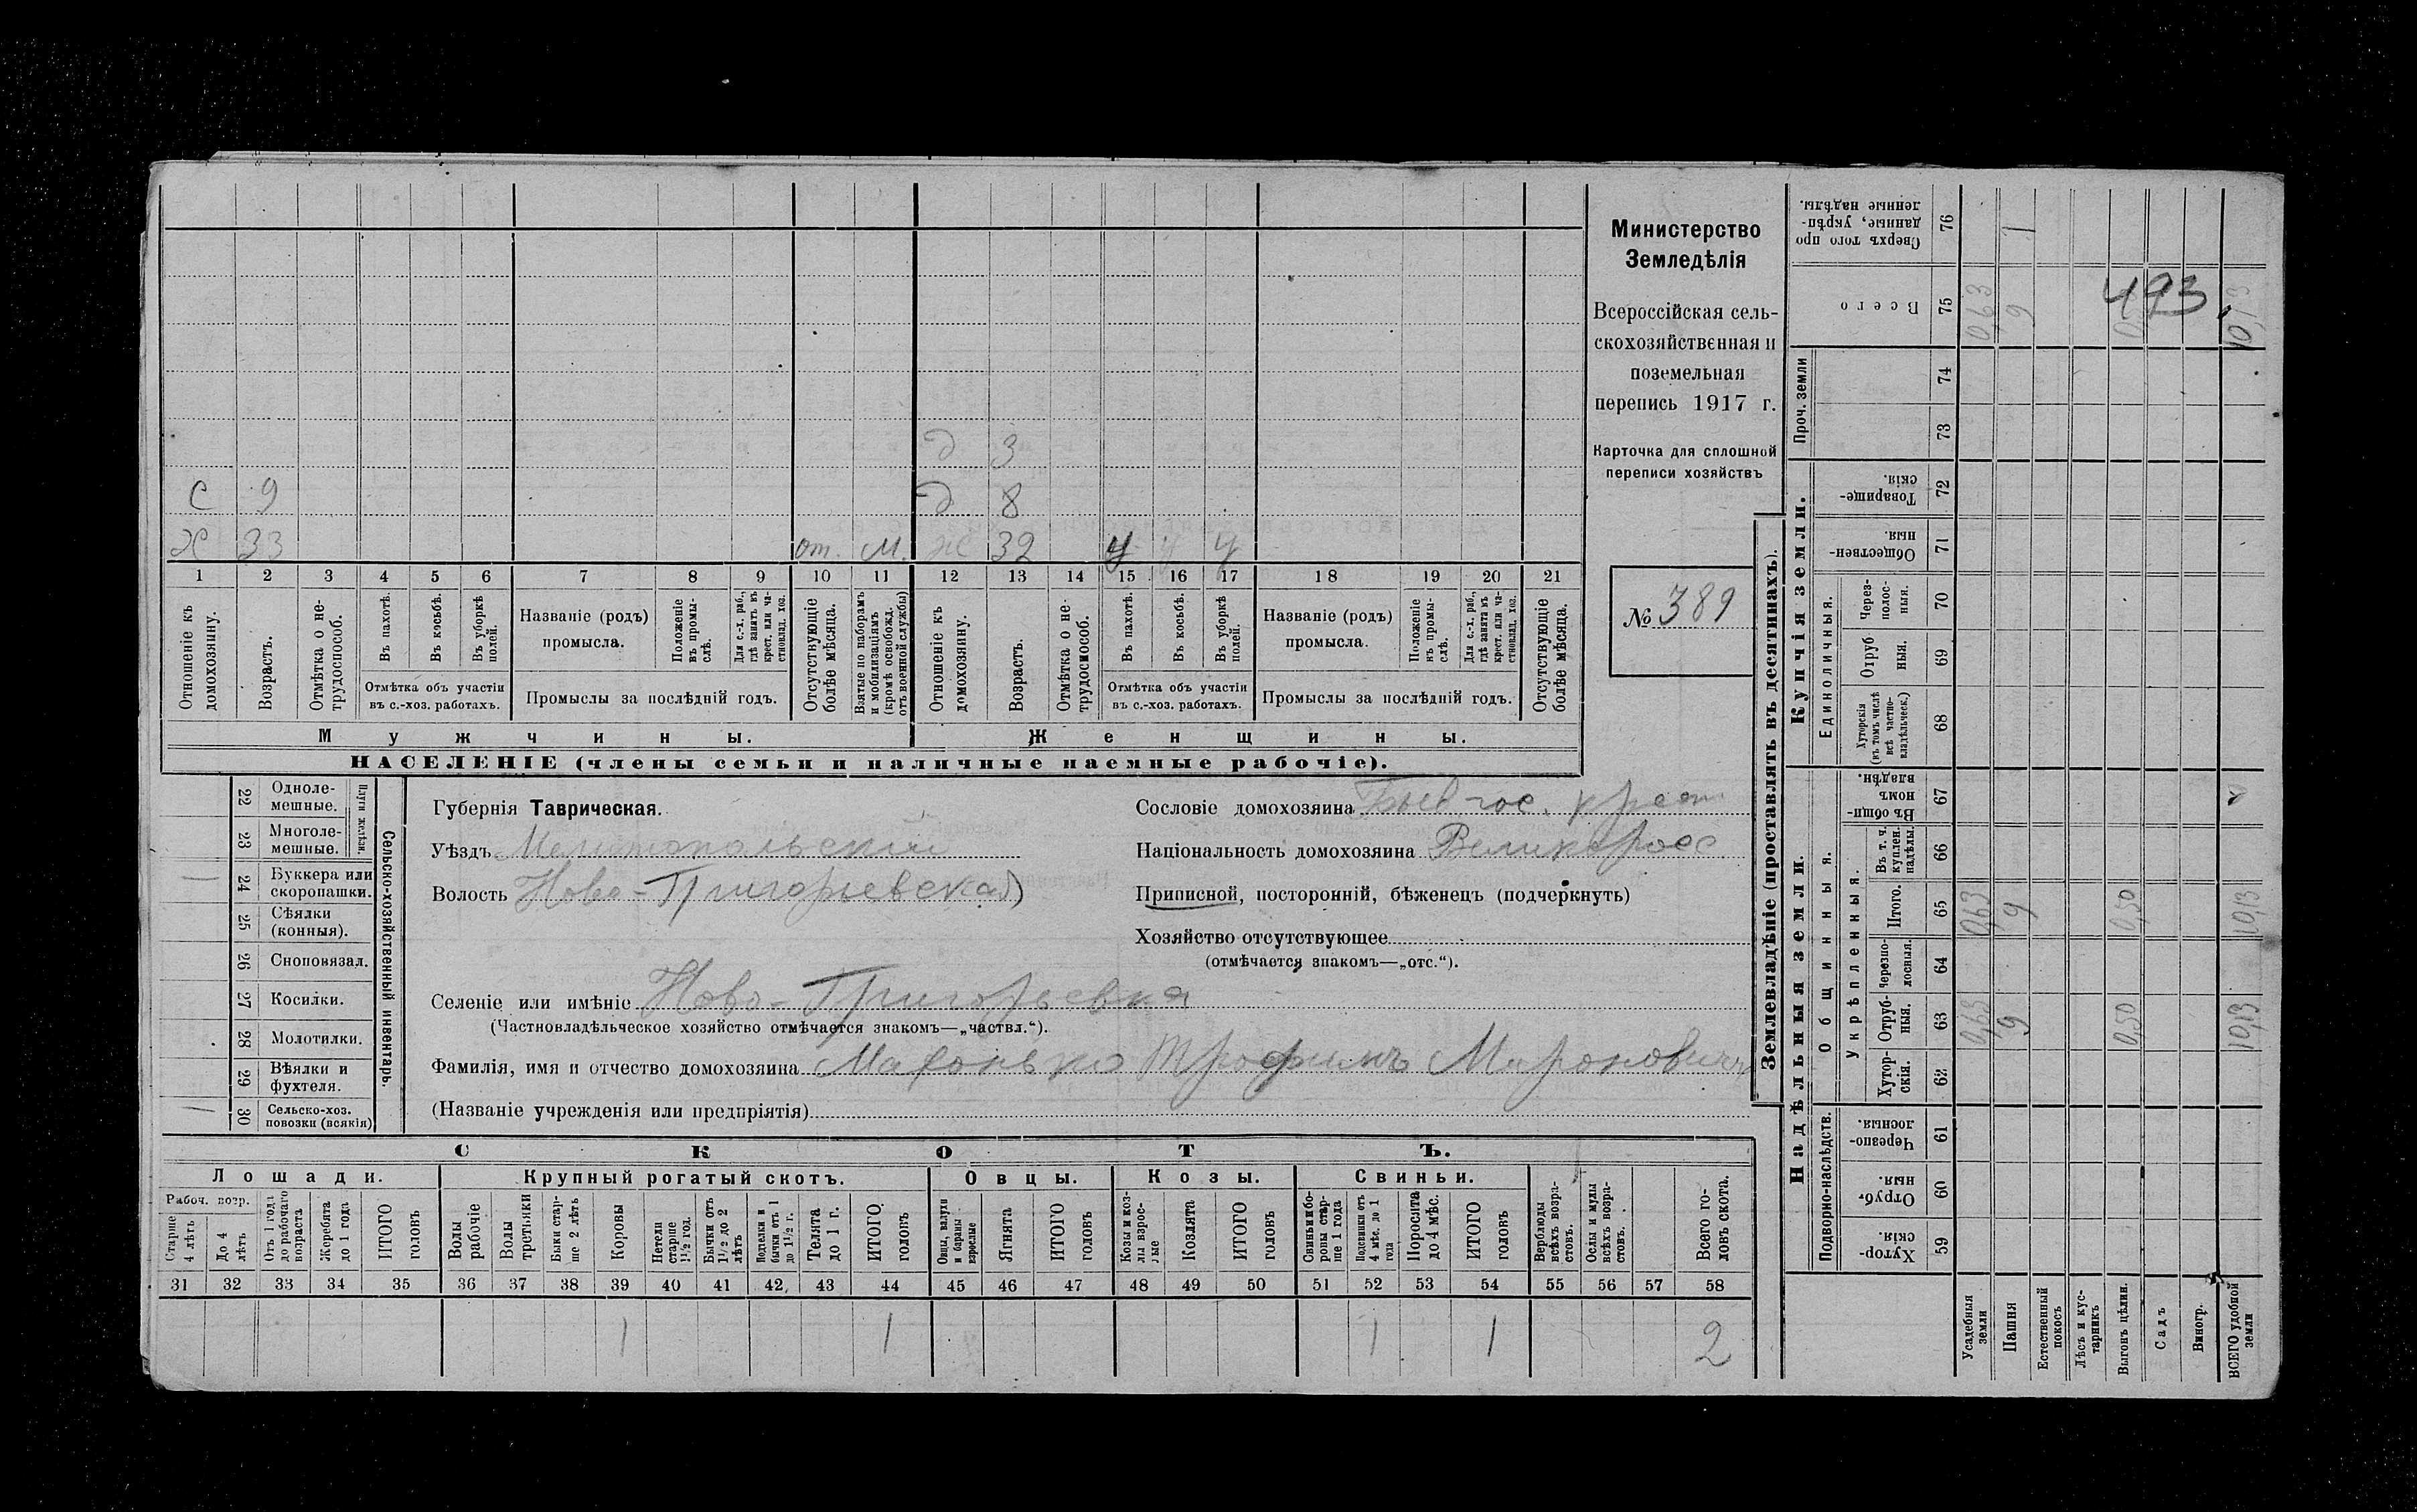 д 3
С 9 д 8
Х 33 от. М. Ж 32 У У У
1 2 3 4 5 6 7 8 9 10 11 12 13 14 15 16 17 18 19 20 21
Отношеніе къ домохозяину.
Возрастъ.
Отмѣтка о не-
трудоспособ.
Въ пахотѣ.
Въ косьбѣ.
Въ уборкѣ
полей.
Отмѣтка объ участіи
въ с.-хоз. работахъ.
Названіе (родъ)
промысла.
Положеніе
въ промы-
слѣ.
Для с.-х. раб.,
гдѣ занятъ въ
крест. или ча-
стновлад. хоз.
Промыслы за послѣдній годъ.
Отсутствующіе
болѣе мѣсяца.
Взятые по наборамъ
и мобилизаціямъ
(кромѣ освобожд.
отъ военной службы)
Отношеніе къ
домохозяину.
Возрастъ.
Отмѣтка о не-
трудоспособ.
Въ пахотѣ.
Въ косьбѣ.
Въ уборкѣ
полей.
Отмѣтка объ участіи
въ с.-хоз. работахъ.
Названіе (родъ)
промысла.
Положеніе
въ промы-
слѣ.
Для с.-х. раб.,
гдѣ занята въ
крест. или ча-
стновлад. хоз.
Промыслы за послѣдній годъ.
Отсутствующіе
болѣе мѣсяца.
Мужчины. Женщины.
НАСЕЛЕНІЕ (члены семьи и наличные наемные рабочіе).
Министерство
Земледѣлія
Всероссійская сель-
скохозяйственная и
поземельная
перепись 1917 г.
Карточка для сплошной
переписи хозяйствъ
№ 389
22 Одноле-
мешные.
23 Многоле-
мешные.
Плуги желѣзн.
24 Буккера или
скоропашки.
25 Сѣялки
(конныя).
26 Сноповязал.
27 Косилки.
28 Молотилки.
29 Вѣялки и
фухтеля.
30 Сельско-хоз.
повозки (всякія)
Сельско-хозяйственный инвентарь.
Губернія Таврическая.
Уѣздъ Мелитопольскій
Волость Ново-Григорьевская
Сословіе домохозяина Быв. гос. крест
Національность домохозяина Великоросс
Приписной, посторонній, бѣженецъ (подчеркнуть)
Хозяйство отсутствующее
(отмѣчается знакомъ—„отс.“).
Селеніе или имѣніе Ново-Григорьевка
(Частновладѣльческое хозяйство отмѣчается знакомъ—„частвл.“).
Фамилія, имя и отчество домохозяина Махонько Трофимъ Мироновичъ
(Названіе учрежденія или предпріятія)
СКОТЪ.
Лошади. Крупный рогатый скотъ. Овцы. Козы. Свиньи.
Рабоч. возр.
Старше
4 лѣтъ
До 4
лѣтъ
Отъ 1 года
до рабочаго
возраста
Жеребята
до 1 года
ИТОГО
головъ
Волы
рабочіе
Волы
третьяки
Быки стар-
ше 2 лѣтъ
Коровы
Нетели
старше
1½ год.
Бычки отъ
1½ до 2
лѣтъ
Подтелки и
бычки отъ 1
до 1½ г.
Телята
до 1 г.
ИТОГО
головъ
Овцы, валухи
и бараны
взрослые
Ягнята
ИТОГО
головъ
Козы и коз-
лы взрос-
лые
Козлята
ИТОГО
головъ
Свиньи и бо-
ровы стар-
ше 1 года
Подсвинки отъ
4 мѣс. до 1
года
Поросята
до 4 мѣс.
ИТОГО
головъ
Верблюды
всѣхъ возра-
стовъ.
Ослы и мулы
всѣхъ возра-
стовъ.
Всего го-
ловъ скота.
31 32 33 34 35 36 37 38 39 40 41 42 43 44 45 46 47 48 49 50 51 52 53 54 55 56 57 58
1 1 1 1 2
Землевладѣніе (проставлять въ десятинахъ).
Надѣльныя земли. Купчія земли.
Подворно-наслѣдств.
Общинныя.
Укрѣпленныя.
Единоличныя.
Проч. земли
Сверхъ того про
данные, укрѣп-
ленные надѣлы. 76
Всего 75
74
73
Товарище-
скія. 72
Обществен-
ныя. 71
Через-
полос-
ныя. 70
Отруб
ныя. 69
Хуторскія
(въ томъ числѣ
всѣ частно-
владѣльческ.) 68
Въ общин-
номъ
владѣн. 67
Въ т. ч.
куплен.
надѣлы. 66
Итого. 65
Черезпо-
лосныя. 64
Отруб-
ныя. 63
Хутор-
скія. 62
Черезпо-
лосныя. 61
Отруб-
ныя. 60
Хутор-
скія. 59
Усадебныя
земли 0,63 0,63 0,63
Пашня 9 9 9
Естественный
покосъ
Лѣсъ и кус-
тарникъ
Выгонъ цѣлин. 0,50 0,50
Садъ
Виногр.
ВСЕГО удобной
земли 10,13 10,13 10,13
493